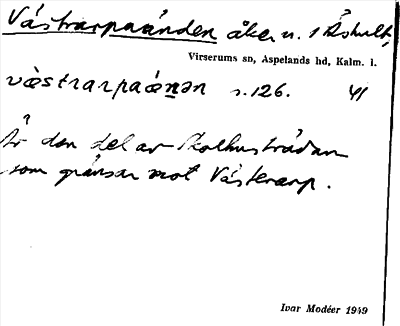 Västrarpaånden åker n. 1 Åshult,
Virserums sn, Aspelands hd, Kalm. l.
västrarpaånən s. 126. 41
Är den del av Skolhusträdan
som gränsar mot Västerarp.
Ivar Modéer 1949